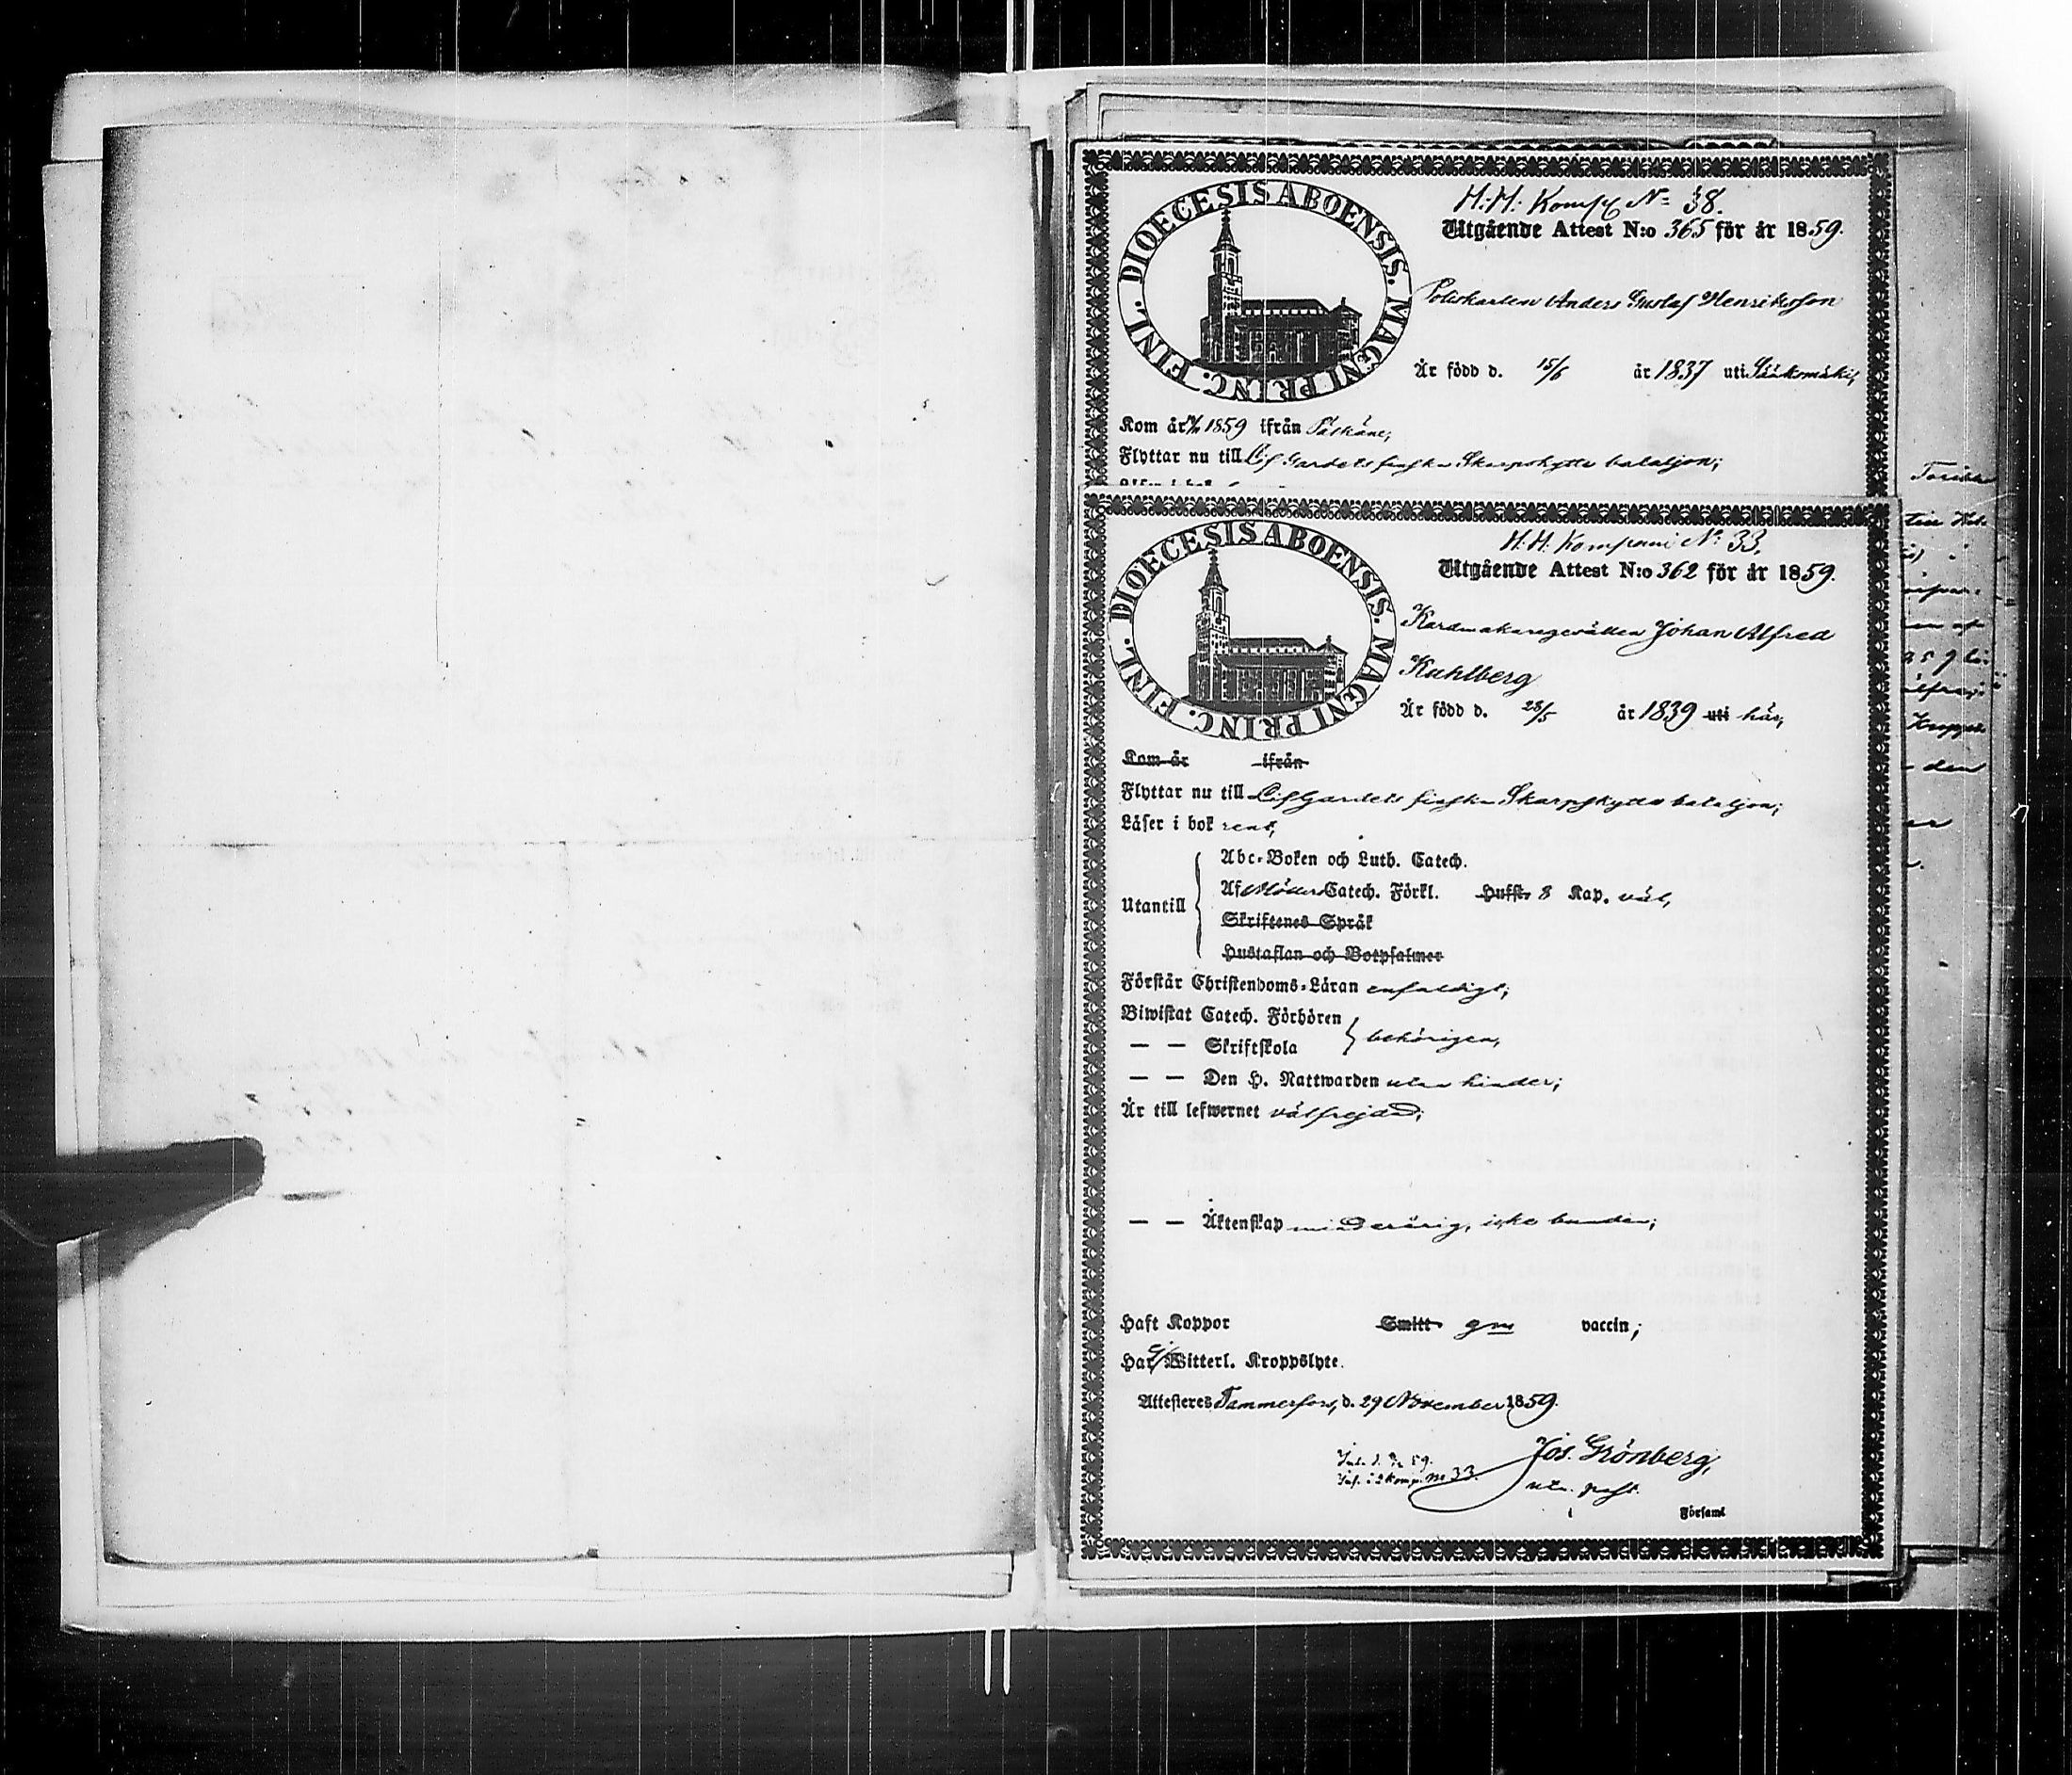 DIOECESIS ABOENSIS. MAGNI PRINC. FINL.
H: H: Komp N= 38.
Utgående Attest N:o 365 för år 1859.
Poliskarlen Anders Gustaf Henriksson
Är född d. 15/6 år 1837 uti Sääksmäki,
Kom år 1859 ifrån Pälkäne;
Flyttar nu till Lif Gardets finska Skarpskytte bataljon;
DIOECESIS ABOENSIS. MAGNI PRINC. FINL.
H. H. Kompani N: 33.
Utgående Attest N:o 362 för år 1859.
Kardmakaregesällen Johan Alfred
Kuhlberg
Är född d. 28/5 år 1839 uti här,
Kom år ifrån
Flyttar nu till LifGardets finska Skarpskytte bataljon;
Läser i bok rent,
Utantill
Abc-Boken och Luth. Catech.
Af Möllers Catech. Förkl. Hufst. 8 Kap. väl,
Skriftenes Språk
Hustaflan och Botpsalmer
Förstår Christendoms-Läran enfaldigt;
Biwistat Catech. Förhören
— — Skriftskola
behörigen,
— — Den H. Nattwarden utan hinder;
Är till lefwernet välfrejdad;
— — Äktenskap minderårig, icke bunden;
Haft Koppor Smitt gm vaccin;
Har ej Witterl. Kroppslyte.
Attesteres Tammerfors, d. 29 November 1859.
Jos. Grönberg,
Inf. i 2 Komp. No 33.
Församl